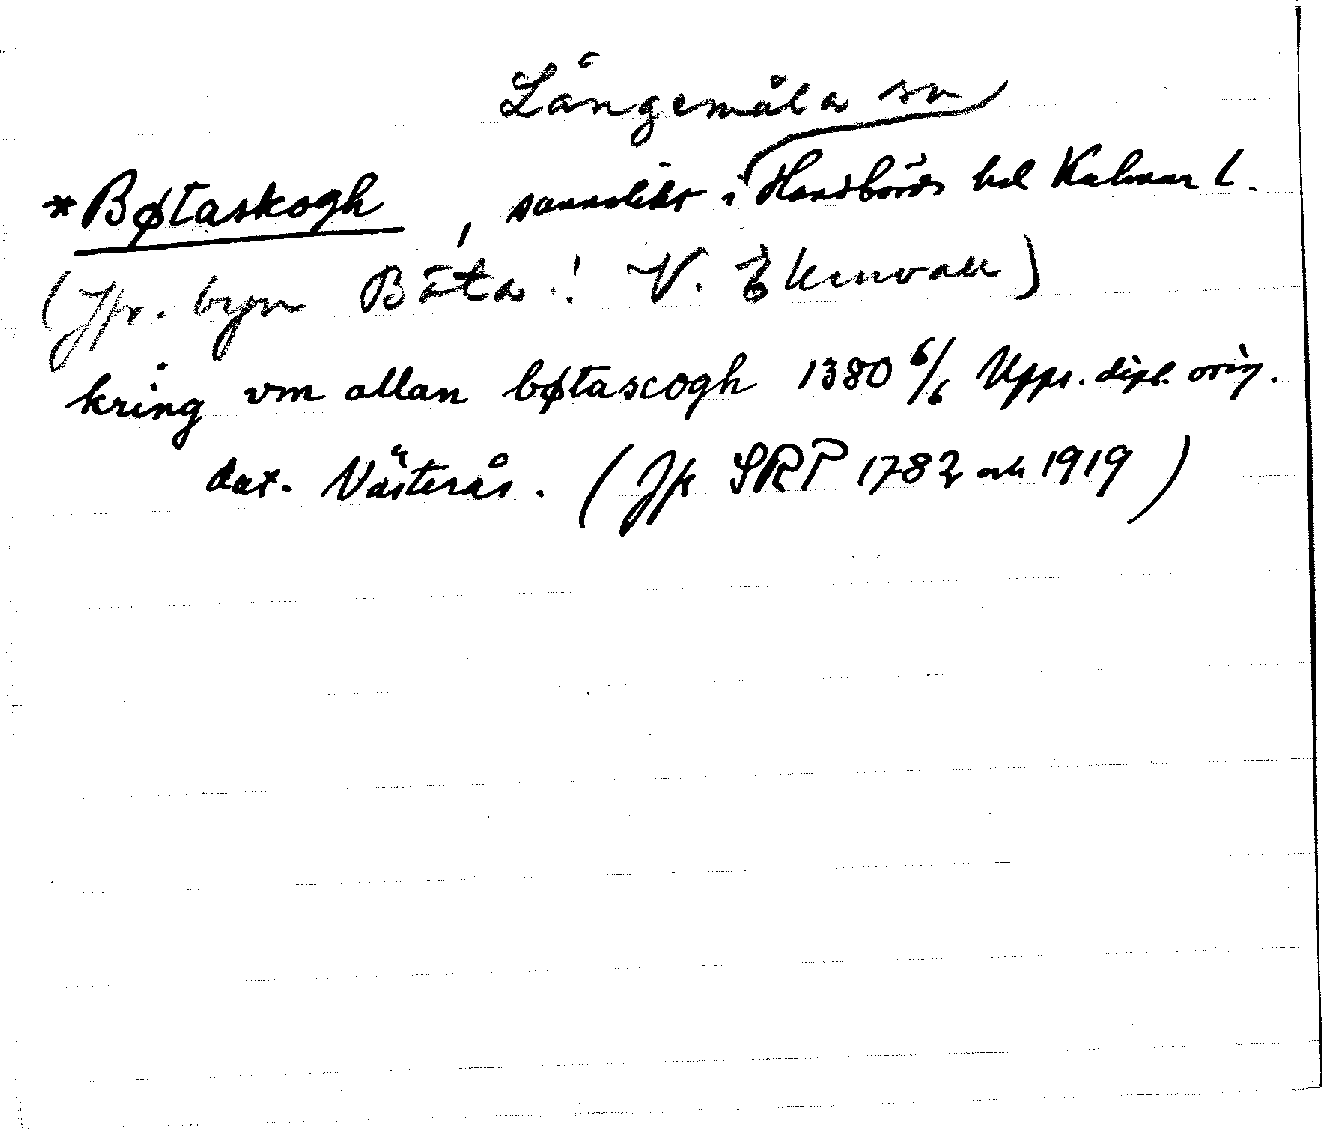 Långemåla sn
*Bøtaskogh, sannolikt i Handbörds hd Kalmar l.
(Jfr. byn Båta! V. Ekenvall)
kring vm allan bøtascogh 1380 6/6 Upps. dipl. orig.
dat. Västerås. (Jfr SRP 1782 och 1919)